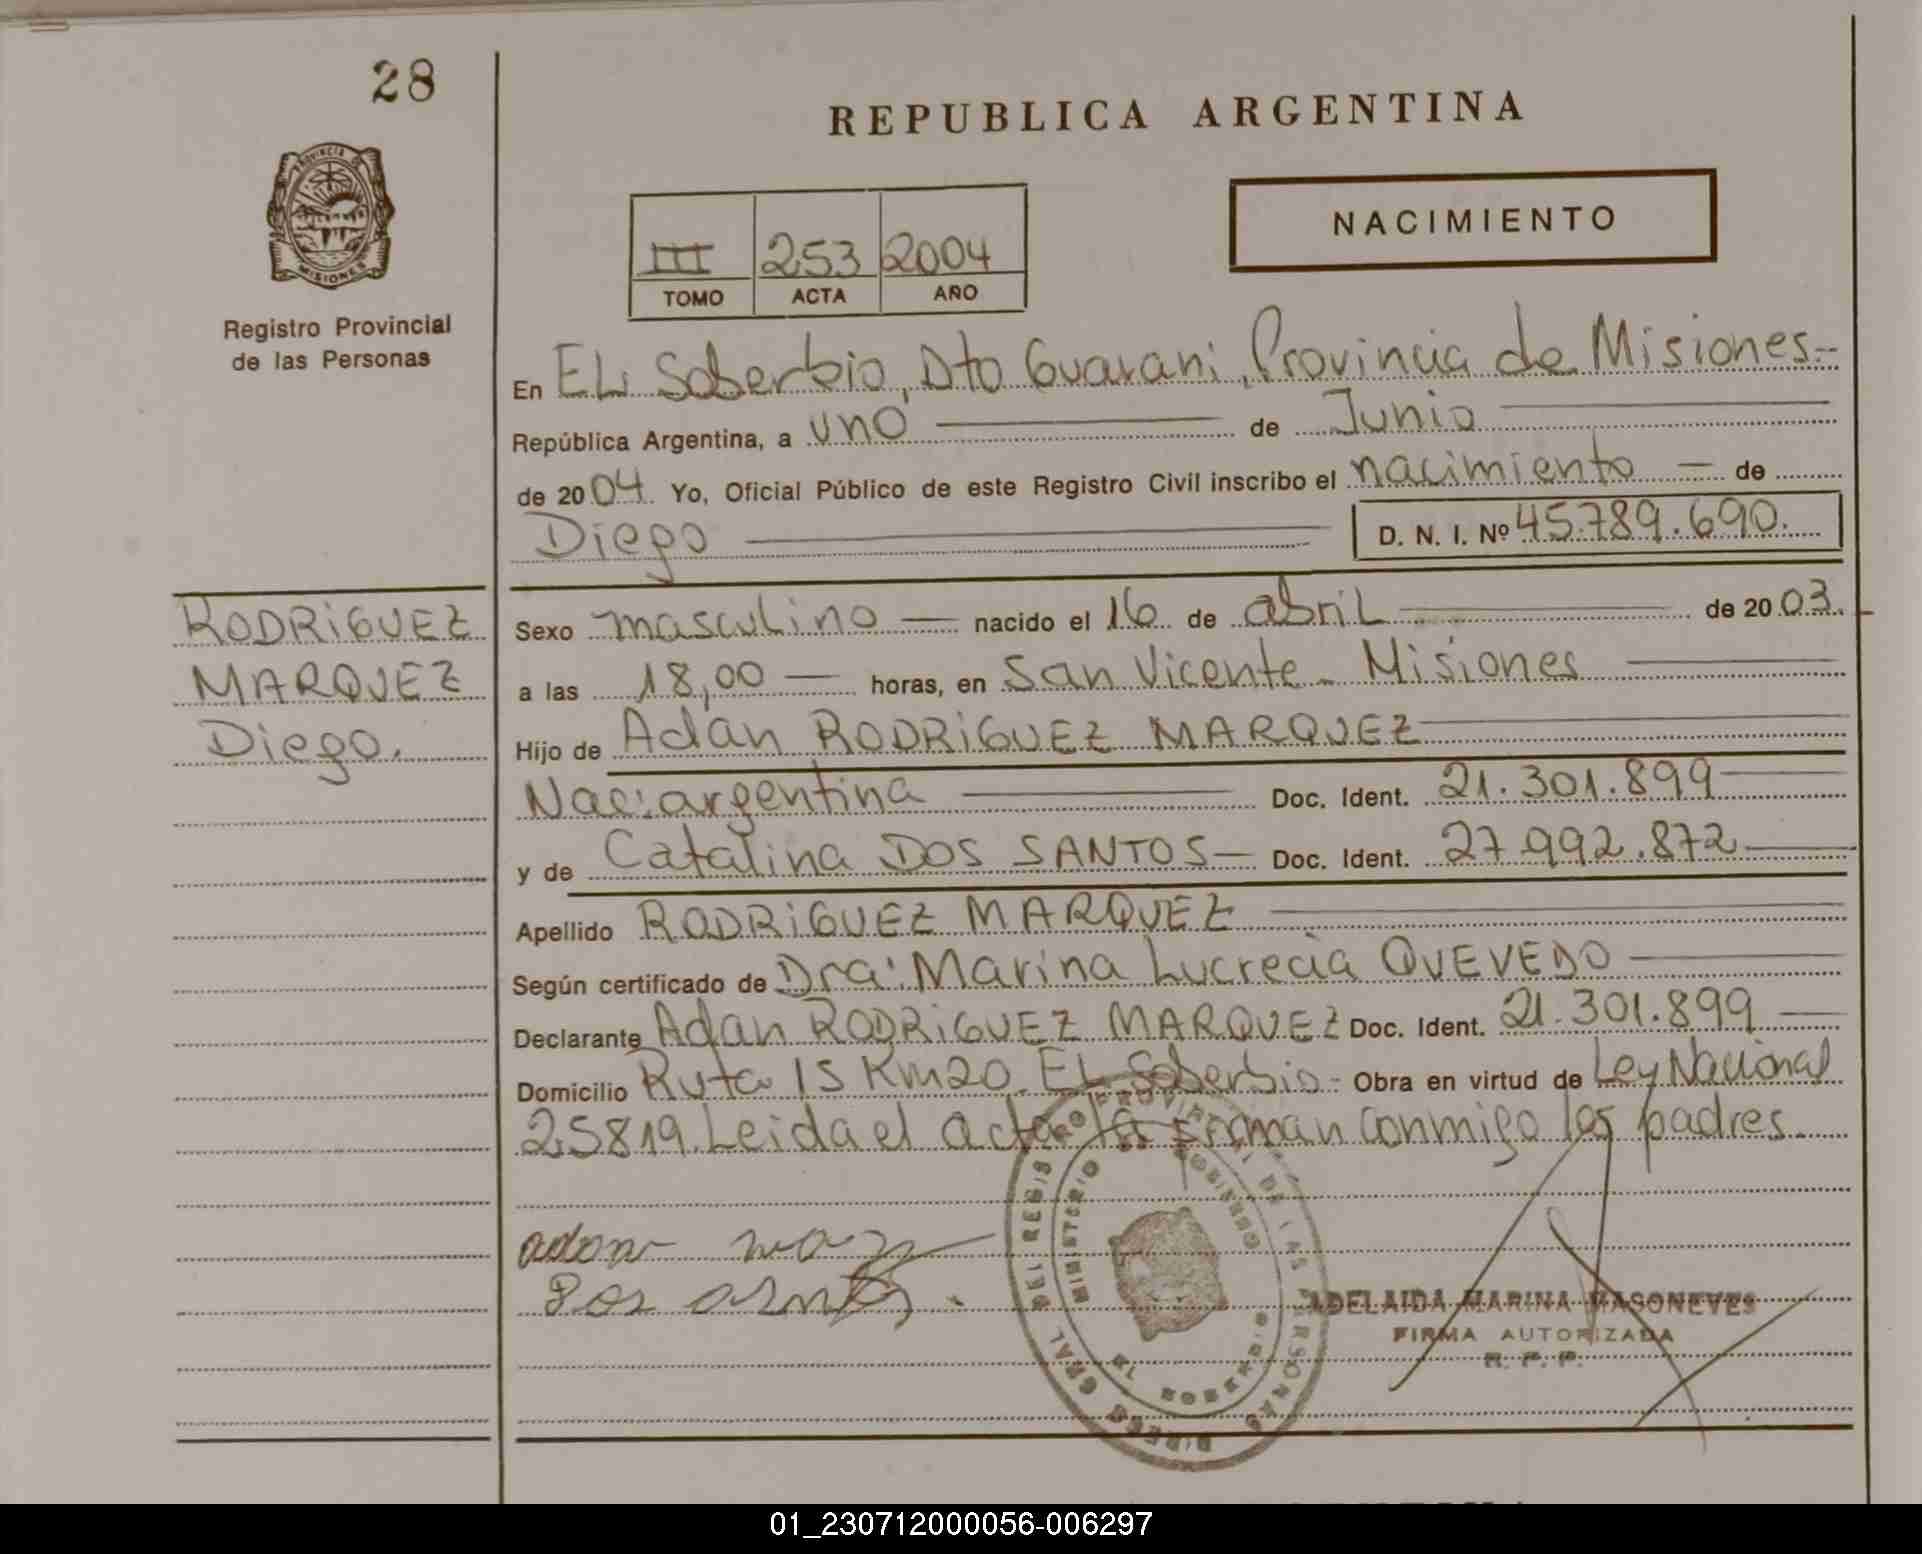 28
REPUBLICA ARGENTINA
PROVINCIA DE
MISIONES
Registro Provincial
de las Personas
NACIMIENTO
III 253 2004
TOMO ACTA AÑO
En EL Soberbio, Dto Guarani, Provincia de Misiones.-
República Argentina, a uno de Junio
de 2004. Yo, Oficial Público de este Registro Civil inscribo el nacimiento de
Diego D. N. I. Nº 45.789.690.
RODRiGUEZ
MARQUEZ
Diego.
Sexo masculino nacido el 16 de abriL de 2003.
a las 18,00 horas, en San Vicente - Misiones
Hijo de Adan RODRiGUEZ MARQUEZ
Nac: argentina Doc. Ident. 21.301.899
y de Catalina DOS SANTOS Doc. Ident. 27.992.872
Apellido RODRiGUEZ MARQUEZ
Según certificado de Dra: Marina Lucrecia QUEVEDO
Declarante Adan RODRiGUEZ MARQUEZ Doc. Ident. 21.301.899
Domicilio Ruta 15 Km 20. EL Soberbio - Obra en virtud de Ley Nacional
25819. Leida el acta la firman conmigo los padres
adan
Dos
DIRECC GRAL DEL REGIS PROVINCIAL DE LAS PERSONAS
MINISTERIO DE GOBIERNO
EL SOBERBIO
ADELAIDA MARINA MASONEVES
FIRMA AUTORIZADA
R. P. P.
01_230712000056-006297